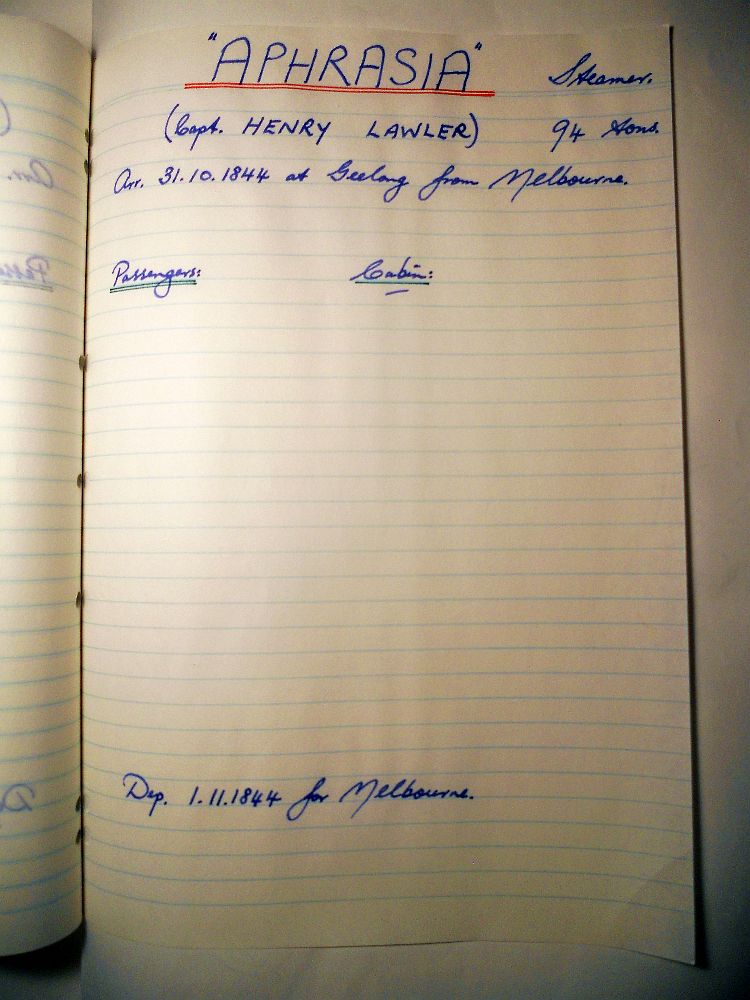 "APHRASIA" Steamer.
(Capt. HENRY LAWLER) 94 tons.
Arr. 31.10.1844 at Geelong from Melbourne.
Passengers: Cabin:
Dep. 1.11.1844 for Melbourne.